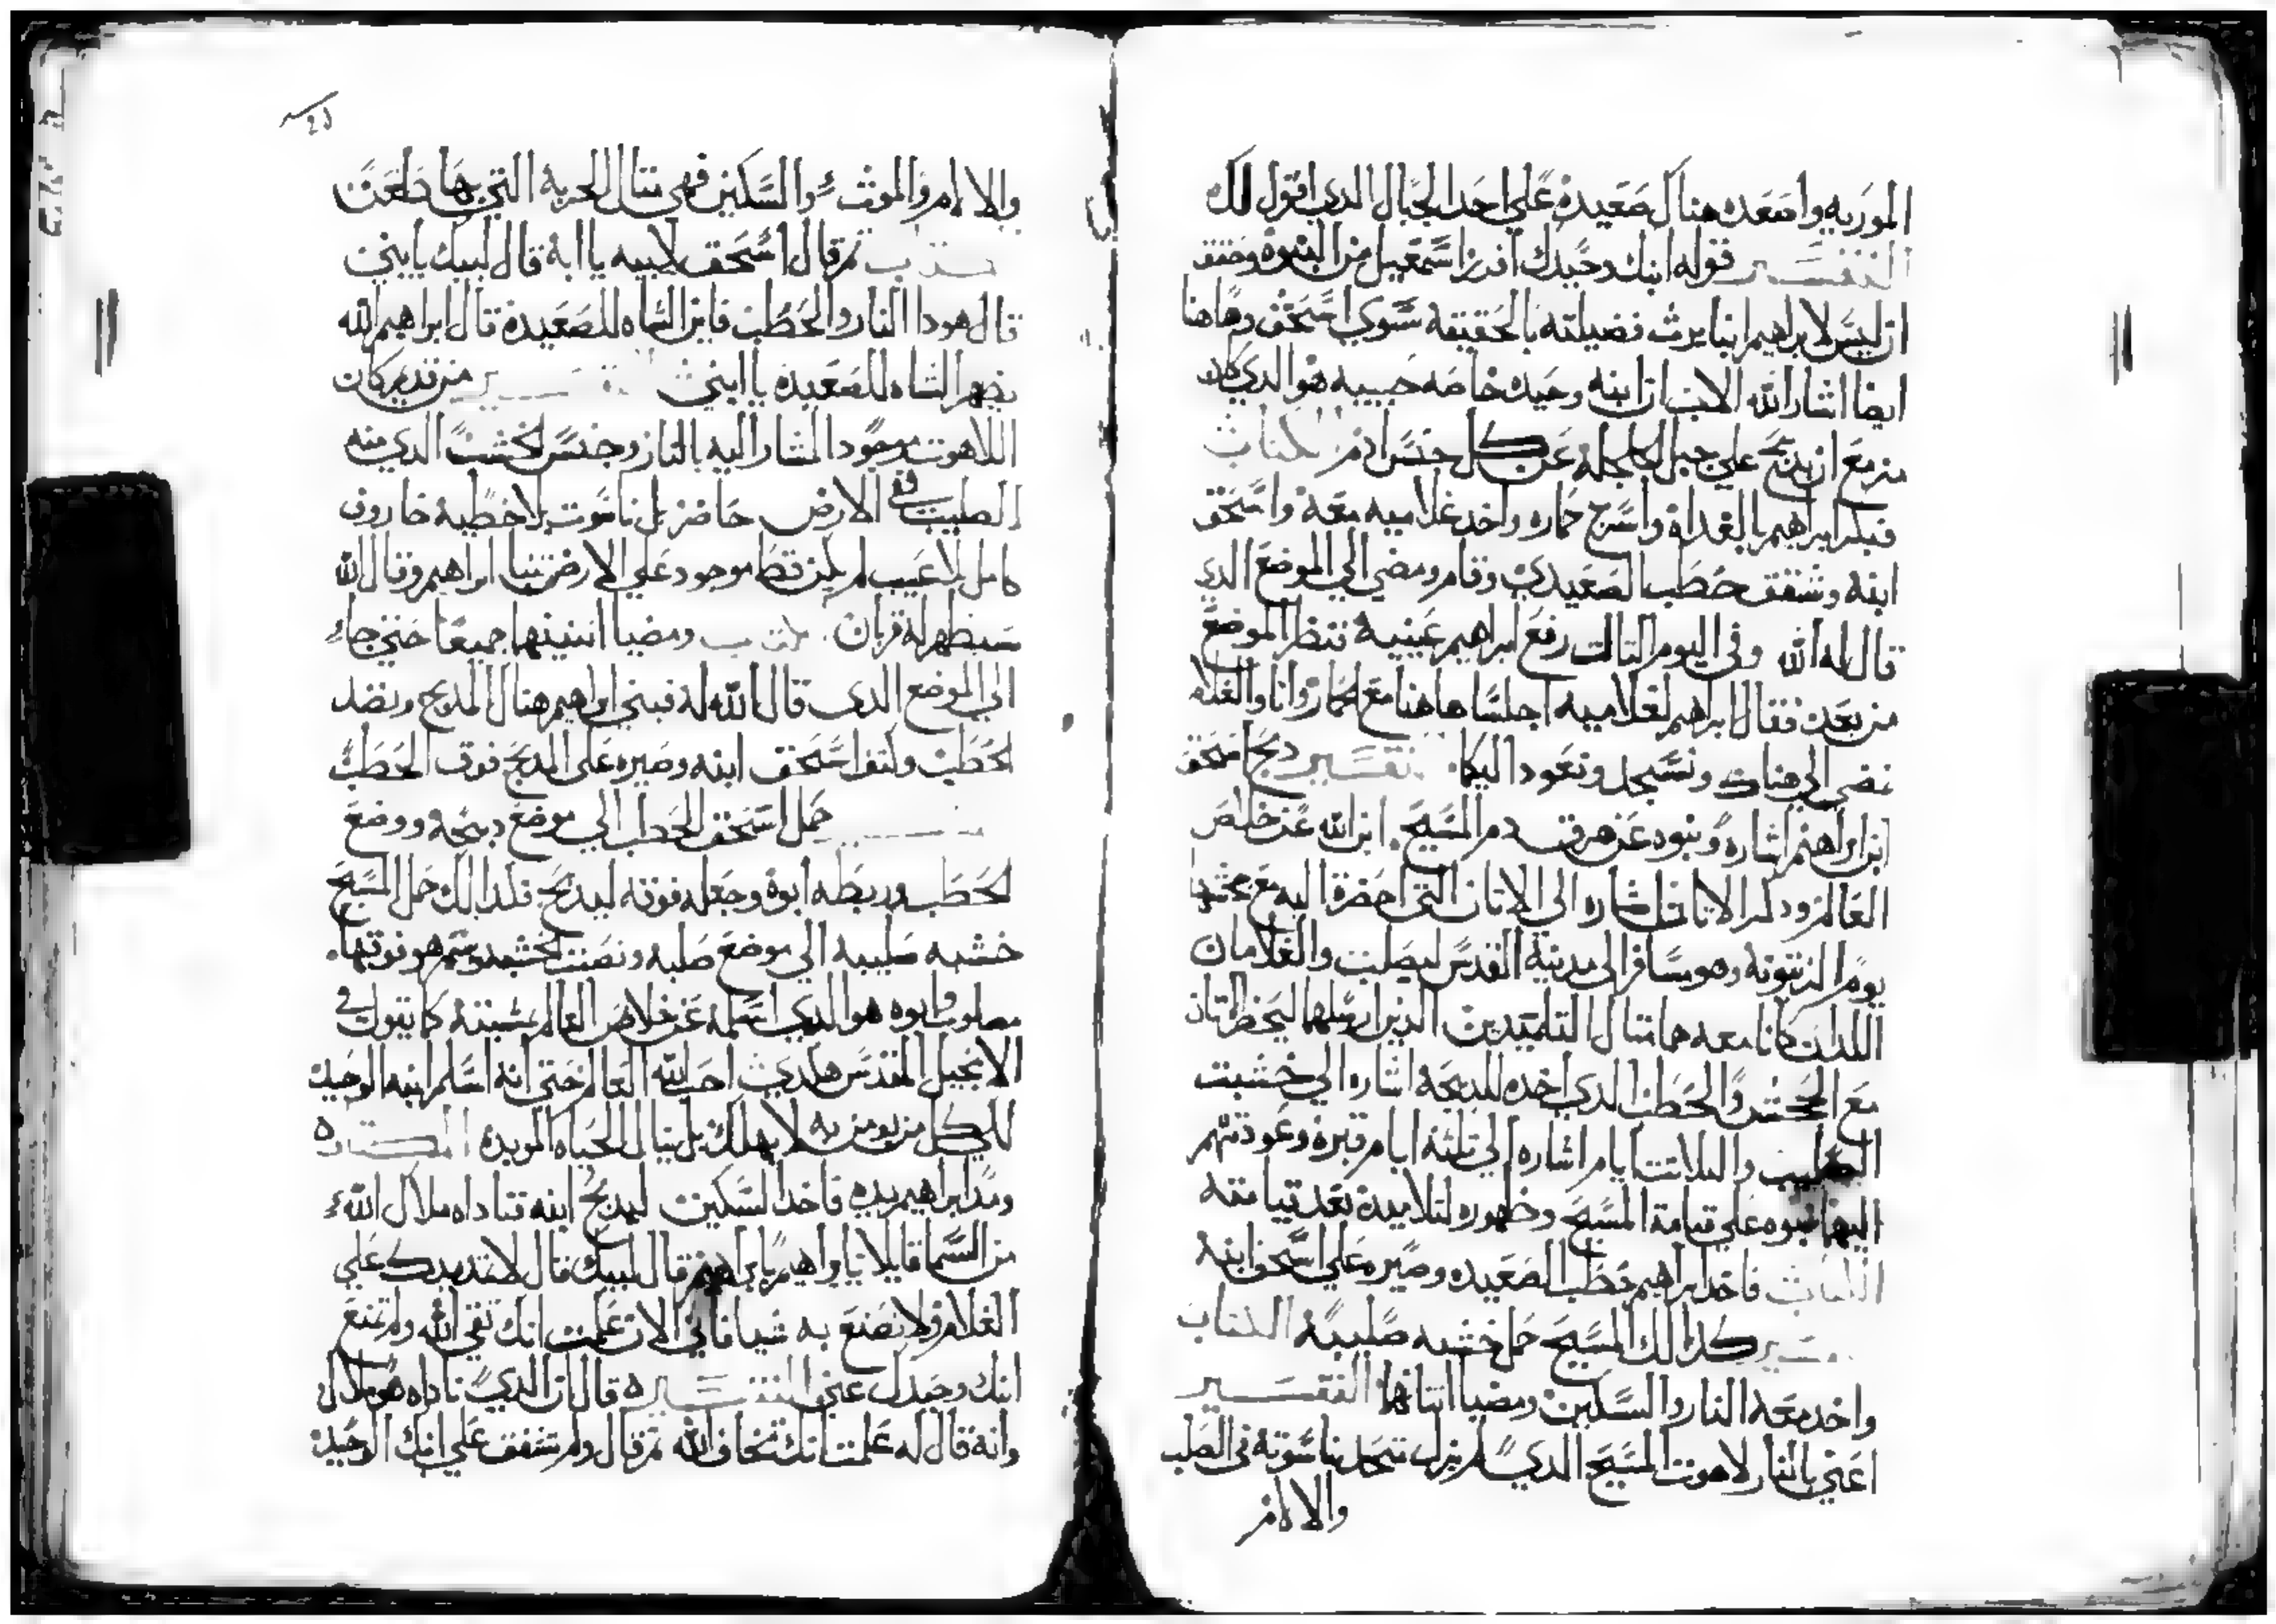 الموريه واصعده هناك صعيده علي احد الجبال الدي اقول لك
التفسير قوله ابنك وحيدك افرز اسمعيل من البنوه وحقق
ان ليس لابراهيم ابنا يرث فضيلته بالحقيقة سوي اسحق وهاهنا
ايضا اشار الله الاب ان ابنه وحيده خاصه حبيبه هو الدي كان
مزمع ان يدبح علي جبل الجلجله عن كل جنس ادم الكتاب
فبكر ابراهيم بالغداة واسرج حماره واخد غلاميه معه واسحق
ابنه وشقق حطب الصعيدي وقام ومضي الي الموضع الدي
قال له الله وفي اليوم التالت رفع ابراهيم عينيه فنظر الموضع
من بعد فقال ابراهيم لغلاميه اجلسا هاهنا مع الحمار وانا والغلام
نمضي الي هناك ونسجد ونعود اليكما تفسير دبح اسحق
ابن ابراهيم اشاره ونبوه عن هرق دم المسيح ابن الله عن خلاص
العالم ودكر الاتان اشاره الي الاتان التي احضرة اليه مع جحشها
يوم الزيتونه وهو مسافر الي مدينة القدس ليصلب والغلامان
اللدان كانا معه هما متال التلميدين الدين ارسلهما ليحضر الاتان
مع الجحش والحطب الدي اخده للدبيحة اشاره الي خشبت
الصليب والتلاتت ايام اشاره الي تلتة ايام قبره وعودتهم
اليهما نبوه علي قيامة المسيح وظهوره لتلاميده بعد قيامته
الكتاب فاخد ابراهيم حطب الصعيده وصيره علي اسحق ابنه
تفسير كدالك المسيح حمل خشبه صليبه الكتاب
واخد معه النار والسكين ومضيا اتنانهما التفسير
اعني بالنار لاهوت المسيح الدي لم يزل متحد بناسوته في الصلب
والالام
والالام والموت والسكين فهي متال الحربه التي بها طعن
كتاب تم قال اسحق لابيه يا ابة قال لبيك يابني
قال هودا النار والحطب فاين الشاه للصعيده قال ابراهيم الله
يظهر الشاه للصعيده يا ابني تفسير من قديم كان
اللاهوت موجودا المشار اليه بالنار وجنس الخشب الدي منه
الصليب في الارض حاضر بل ناسوت بلا خطية خاروف
كامل بلا عيب لم يكن قط موجود علي الارض تنبا ابراهيم وقال الله
سيظهر له قربان كتاب ومضيا اتنينهما جميعا حتي جاء
الي الموضع الدي قال الله له فبني ابراهيم هناك المدبح ونضد
الحطب وكتف اسحق ابنه وصيره علي المدبح فوق الحطب
حمل اسحق الحطب الي موضع دبيحه ووضع
الحطب وربطه ابوه وجعله فوقه ليدبح فكدالك حمل المسيح
خشبه صليبه الي موضع صلبه ونصبت الخشبه وسمر هو فوقها
مصلوب وابوه هو الدي اسلمه عن خلاص العالم بمشيته كما يقول في
الانجيل المقدس هكدي احب الله العالم حتي انه اسلم ابنه الوحيد
لكي كل من يومن به لا يهلك بل ينال الحياه الموبده الكتاب
ومد ابراهيم يده فاخد السكين ليدبح ابنه فناداه ملاك الله
من السما قايلا يا ابراهيم يا ابراهيم قال لبيك قال لا تمد يدك علي
الغلام ولا تصنع به شيا فاني الان علمت انك تقي الله ولم تمنع
ابنك وحيدك عني التفسير قال ان الدي ناداه هو ملاك
وانه قال له علمت انك تخاف الله تم قال ولم تشفق علي ابنك الوحيد